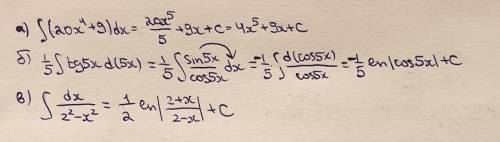 а) ∫(20x⁴+9)dx = 20x⁵/5 + 9x + c = 4x⁵ + 9x + c
б) 1/5 ∫ tg5x d(5x) = 1/5 ∫ sin5x/cos5x dx = -1/5 ∫ d(cos5x)/cos5x = -1/5 en|cos5x| + C
в) ∫ dx/(2²-x²) = 1/2 en|(2+x)/(2-x)| + C